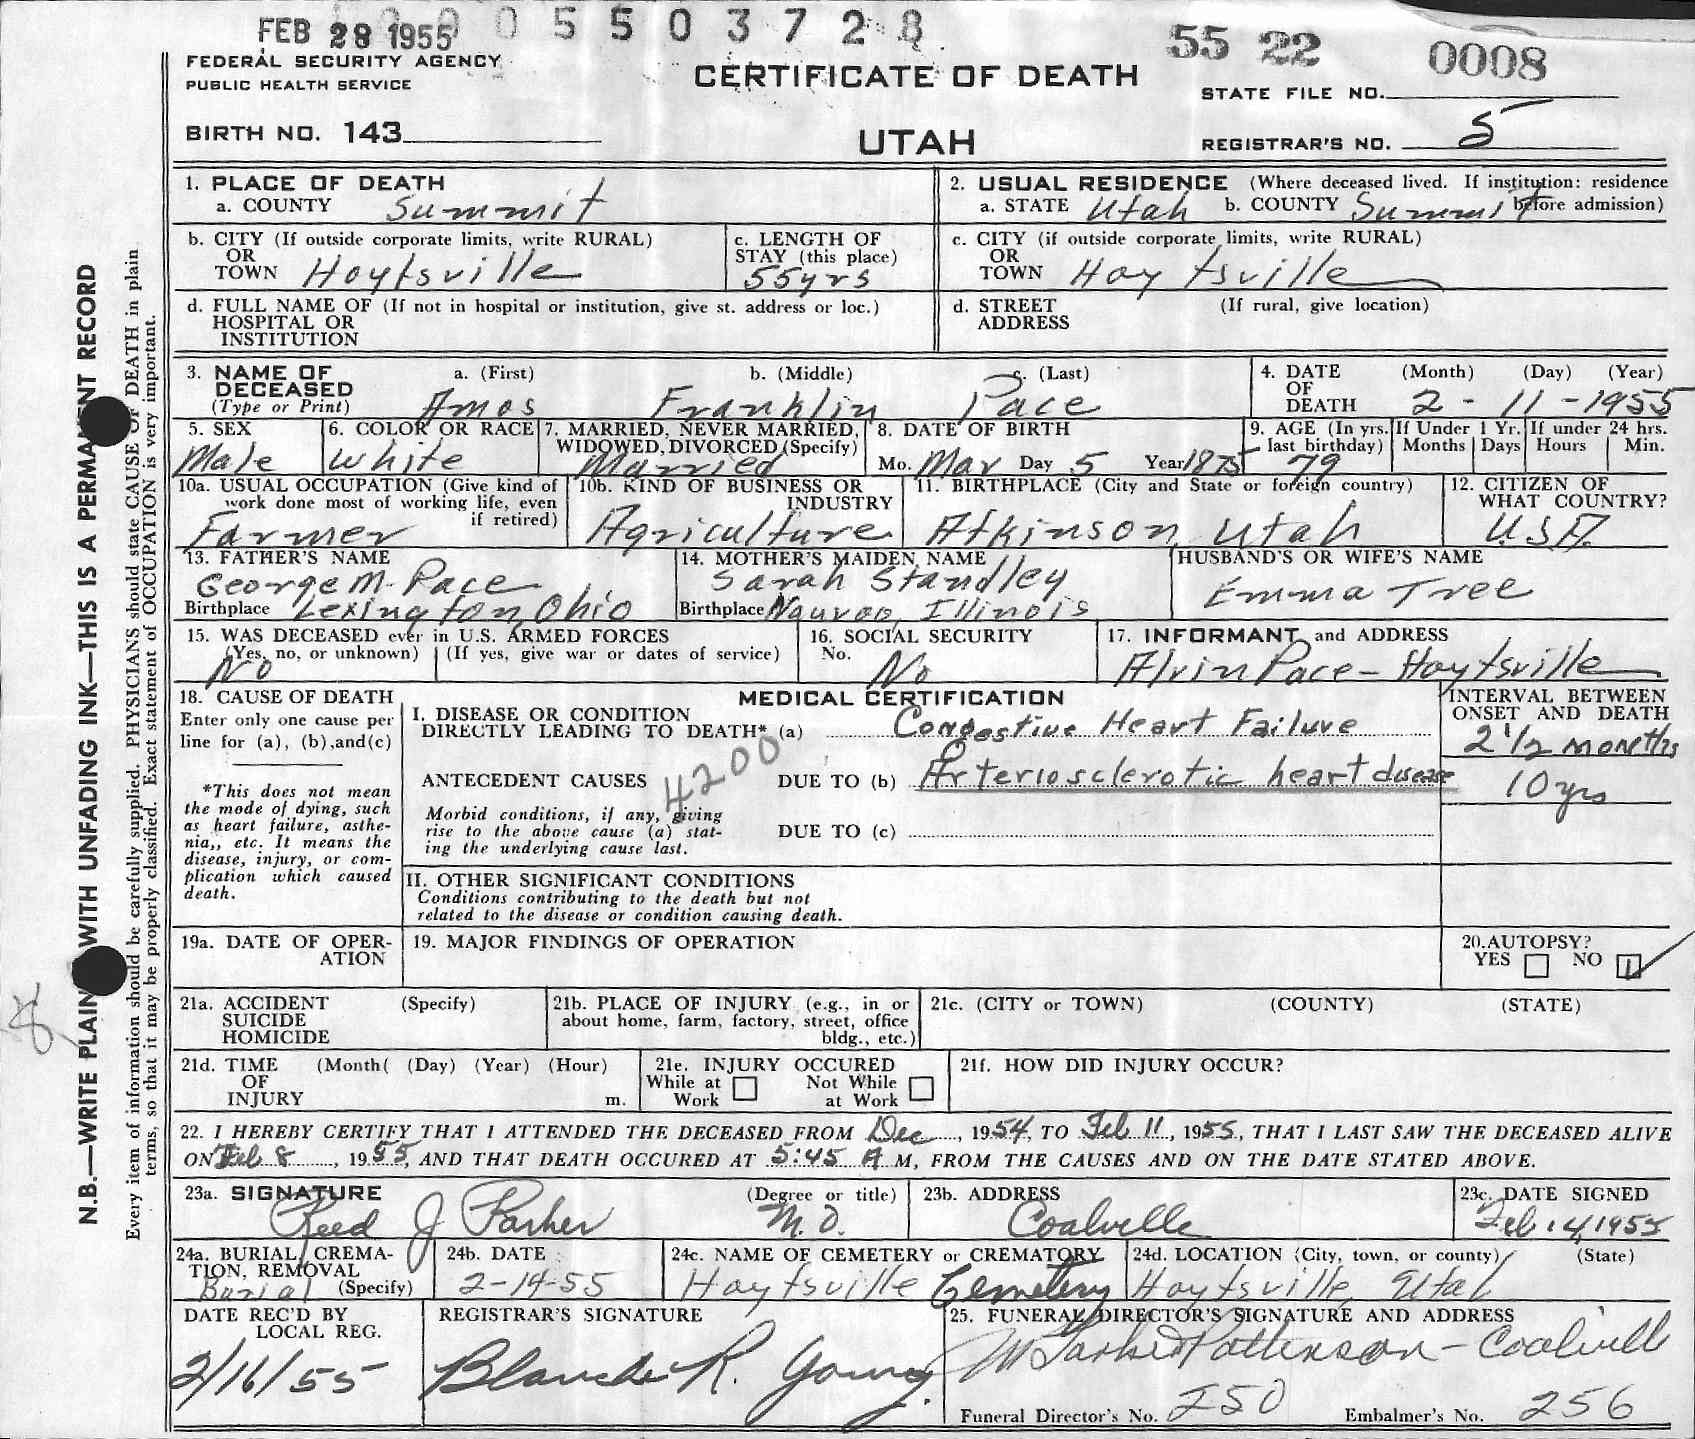 FEB 28 1955 0005503728 55 22 0008
FEDERAL SECURITY AGENCY
PUBLIC HEALTH SERVICE
CERTIFICATE OF DEATH
STATE FILE NO.
BIRTH NO. 143
UTAH
REGISTRAR'S NO. 5
1. PLACE OF DEATH
a. COUNTY Summit
2. USUAL RESIDENCE (Where deceased lived. If institution: residence
a. STATE Utah b. COUNTY Summit before admission)
b. CITY (If outside corporate limits, write RURAL)
OR
TOWN Hoytsville
c. LENGTH OF
STAY (this place)
55yrs
c. CITY (if outside corporate limits, write RURAL)
OR
TOWN Hoytsville
d. FULL NAME OF (If not in hospital or institution, give st. address or loc.)
HOSPITAL OR
INSTITUTION
d. STREET (If rural, give location)
ADDRESS
3. NAME OF a. (First) b. (Middle) c. (Last)
DECEASED
(Type or Print) Amos Franklin Pace
4. DATE (Month) (Day) (Year)
OF
DEATH 2 - 11 - 1955
5. SEX
Male
6. COLOR OR RACE
White
7. MARRIED, NEVER MARRIED,
WIDOWED, DIVORCED (Specify)
Married
8. DATE OF BIRTH
Mo. Mar Day 5 Year 1875
9. AGE (In yrs.
last birthday)
79
If Under 1 Yr.
Months Days
If under 24 hrs.
Hours Min.
10a. USUAL OCCUPATION (Give kind of
work done most of working life, even
if retired)
Farmer
10b. KIND OF BUSINESS OR
INDUSTRY
Agriculture
11. BIRTHPLACE (City and State or foreign country)
Atkinson, Utah
12. CITIZEN OF
WHAT COUNTRY?
U.S.A.
13. FATHER'S NAME
George M. Pace
Birthplace Lexington, Ohio
14. MOTHER'S MAIDEN NAME
Sarah Standley
Birthplace Nauvoo, Illinois
HUSBAND'S OR WIFE'S NAME
Emma Tree
15. WAS DECEASED ever in U.S. ARMED FORCES
(Yes, no, or unknown) (If yes, give war or dates of service)
No
16. SOCIAL SECURITY
No. No
17. INFORMANT and ADDRESS
Alvin Pace - Hoytsville
18. CAUSE OF DEATH
Enter only one cause per
line for (a), (b), and (c)
*This does not mean
the mode of dying, such
as heart failure, asthe-
nia,, etc. It means the
disease, injury, or com-
plication which caused
death.
MEDICAL CERTIFICATION
I. DISEASE OR CONDITION
DIRECTLY LEADING TO DEATH* (a) Congestive Heart Failure
ANTECEDENT CAUSES 4200 DUE TO (b) Arteriosclerotic heart disease
Morbid conditions, if any, giving
rise to the above cause (a) stat-
ing the underlying cause last.
DUE TO (c)
INTERVAL BETWEEN
ONSET AND DEATH
2 1/2 months
10 yrs
II. OTHER SIGNIFICANT CONDITIONS
Conditions contributing to the death but not
related to the disease or condition causing death.
19a. DATE OF OPER-
ATION
19. MAJOR FINDINGS OF OPERATION
20. AUTOPSY?
YES NO
21a. ACCIDENT (Specify)
SUICIDE
HOMICIDE
21b. PLACE OF INJURY (e.g., in or
about home, farm, factory, street, office
bldg., etc.)
21c. (CITY or TOWN) (COUNTY) (STATE)
21d. TIME (Month( (Day) (Year) (Hour)
OF
INJURY m.
21e. INJURY OCCURED
While at Not While
Work at Work
21f. HOW DID INJURY OCCUR?
22. I HEREBY CERTIFY THAT I ATTENDED THE DECEASED FROM Dec, 1954, TO Feb 11, 1955, THAT I LAST SAW THE DECEASED ALIVE
ON Feb 8, 1955, AND THAT DEATH OCCURED AT 5:45 A M, FROM THE CAUSES AND ON THE DATE STATED ABOVE.
23a. SIGNATURE (Degree or title)
Reed J Parker M.D.
23b. ADDRESS
Coalville
23c. DATE SIGNED
Feb 14, 1955
24a. BURIAL, CREMA-
TION, REMOVAL
Burial (Specify)
24b. DATE
2-14-55
24c. NAME OF CEMETERY or CREMATORY
Hoytsville Cemetery
24d. LOCATION (City, town, or county) (State)
Hoytsville, Utah
DATE REC'D BY
LOCAL REG.
2/16/55
REGISTRAR'S SIGNATURE
Blanche R. Young
25. FUNERAL DIRECTOR'S SIGNATURE AND ADDRESS
Pattenson - Coalville
Funeral Director's No. 250 Embalmer's No. 256
N.B.—WRITE PLAIN WITH UNFADING INK—THIS IS A PERMANENT RECORD
Every item of information should be carefully supplied. PHYSICIANS should state CAUSE OF DEATH in plain
terms, so that it may be properly classified. Exact statement of OCCUPATION is very important.